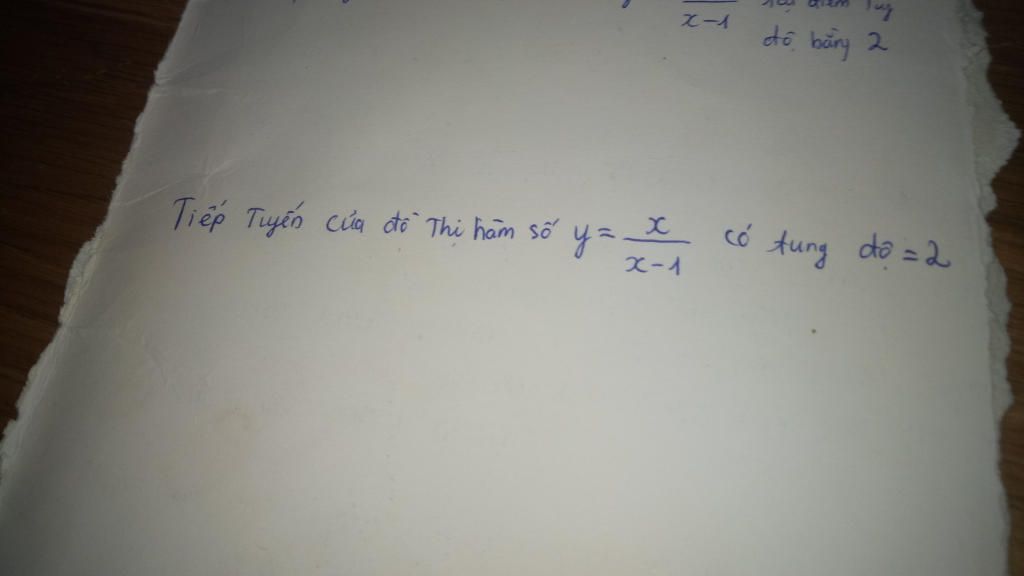 x-1
độ bằng 2
Tiếp Tuyến của đồ Thị hàm số y = x/(x-1) có tung độ = 2